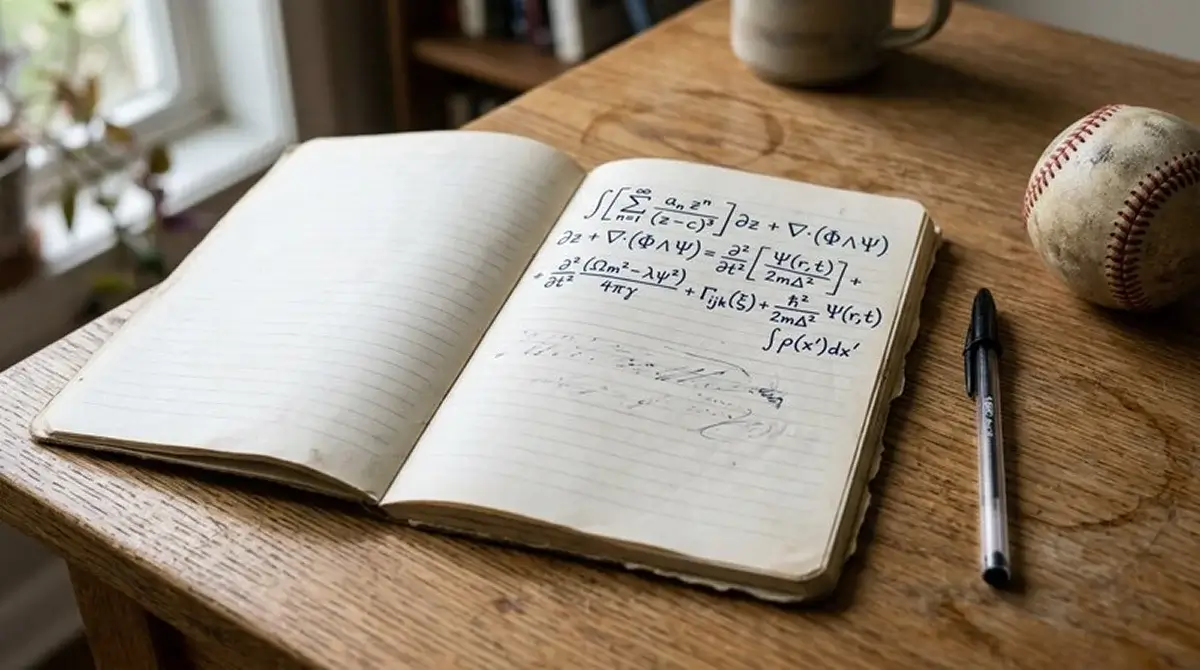 ∫[∑_{n=1}^{∞} a_n z^n / (z-c)^3] ∂z + ∇·(Φ∧Ψ)
∂z + ∇·(Φ∧Ψ) = ∂²/∂t² [Ψ(r,t) / 2mΔ²] +
+ ∂²/∂t² (Ωm² - λψ²) / 4πγ + Γ_{ijk}(ξ) + ℏ²/2mΔ² Ψ(r,t)
∫ρ(x')dx'